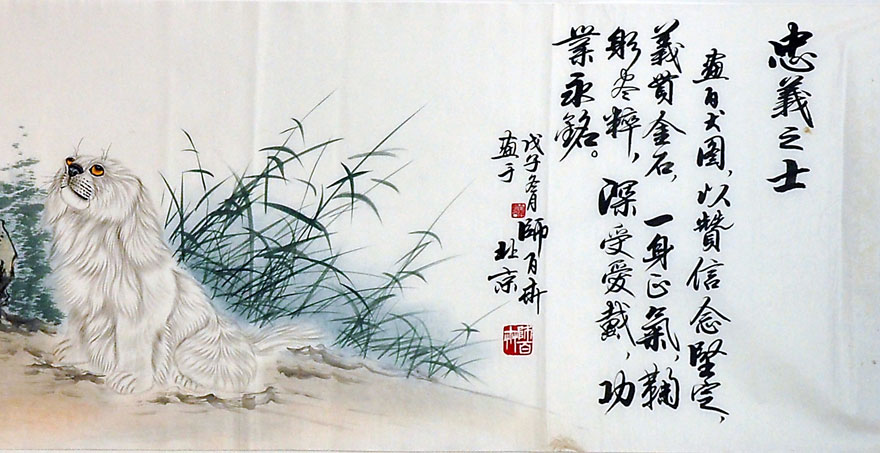 忠義之士
畫百犬圖，以贊信念堅定，
義貫金石，一身正氣，鞠
躬尽粹，深受愛戴，功
業永銘。
戊子冬月師百林
畫于北京
師百林